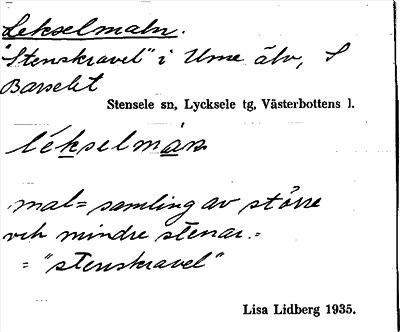 Lekselmaln.
"Stenskravel" i Ume älv, S
Barselet
Stensele sn, Lycksele tg, Västerbottens l.
lékselmàn
mal = samling av större
och mindre stenar. =
= "stenskravel"
Lisa Lidberg 1935.